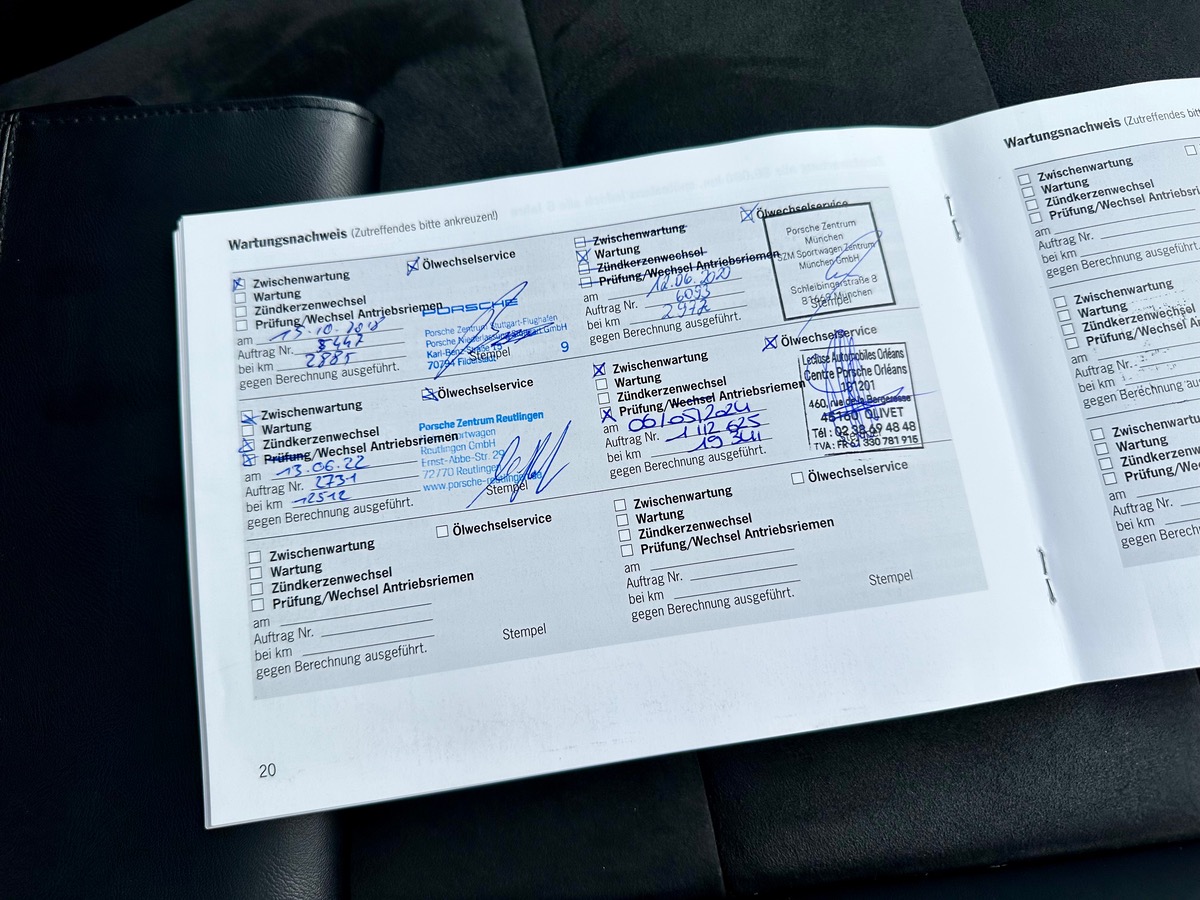 Wartungsnachweis (Zutreffendes bitte ankreuzen!)
Zwischenwartung
Ölwechselservice
Wartung
Zündkerzenwechsel
Prüfung/Wechsel Antriebsriemen
am 15.10.2018
Auftrag Nr. 8447
bei km 2885
gegen Berechnung ausgeführt.
PORSCHE
Porsche Zentrum Stuttgart-Flughafen
Porsche Niederlassung Stuttgart GmbH
Karl-Benz-Straße
70794 Filderstadt
9
Stempel
Zwischenwartung
Ölwechselservice
Wartung
Zündkerzenwechsel
Prüfung/Wechsel Antriebsriemen
am 12.06.2020
Auftrag Nr. 6093
bei km 2972
gegen Berechnung ausgeführt.
Porsche Zentrum
München
SZM Sportwagen Zentrum
München GmbH
Schleibingerstraße 8
München
Stempel
Zwischenwartung
Ölwechselservice
Wartung
Zündkerzenwechsel
Prüfung/Wechsel Antriebsriemen
am 13.06.22
Auftrag Nr. 2731
bei km 12512
gegen Berechnung ausgeführt.
Porsche Zentrum Reutlingen
Reutlingen GmbH
Ernst-Abbe-Str. 29
72770 Reutlingen
Stempel
Zwischenwartung
Ölwechselservice
Wartung
Zündkerzenwechsel
Prüfung/Wechsel Antriebsriemen
am 06/05/2024
Auftrag Nr. 112 625
bei km 19 341
gegen Berechnung ausgeführt.
Lecluse Automobiles Orléans
Centre Porsche Orléans
460, rue de la Bergeresse
45160 OLIVET
Tél : 02 38 69 48 48
TVA : FR 61 330 781 915
Zwischenwartung
Ölwechselservice
Wartung
Zündkerzenwechsel
Prüfung/Wechsel Antriebsriemen
am
Auftrag Nr.
bei km
gegen Berechnung ausgeführt.
Stempel
Zwischenwartung
Ölwechselservice
Wartung
Zündkerzenwechsel
Prüfung/Wechsel Antriebsriemen
am
Auftrag Nr.
bei km
gegen Berechnung ausgeführt.
Stempel
20
Wartungsnachweis (Zutreffendes
Zwischenwartung
Wartung
Zündkerzenwechsel
Prüfung/Wechsel
am
Auftrag Nr.
bei km
gegen Berechnung ausgeführt.
Zwischenwartung
Wartung
Zündkerzenwechsel
Prüfung/Wechsel
am
Auftrag Nr.
bei km
gegen Berechnung
Zwischenwartung
Wartung
Prüfung/Wechsel
am
Auftrag Nr.
bei km
gegen